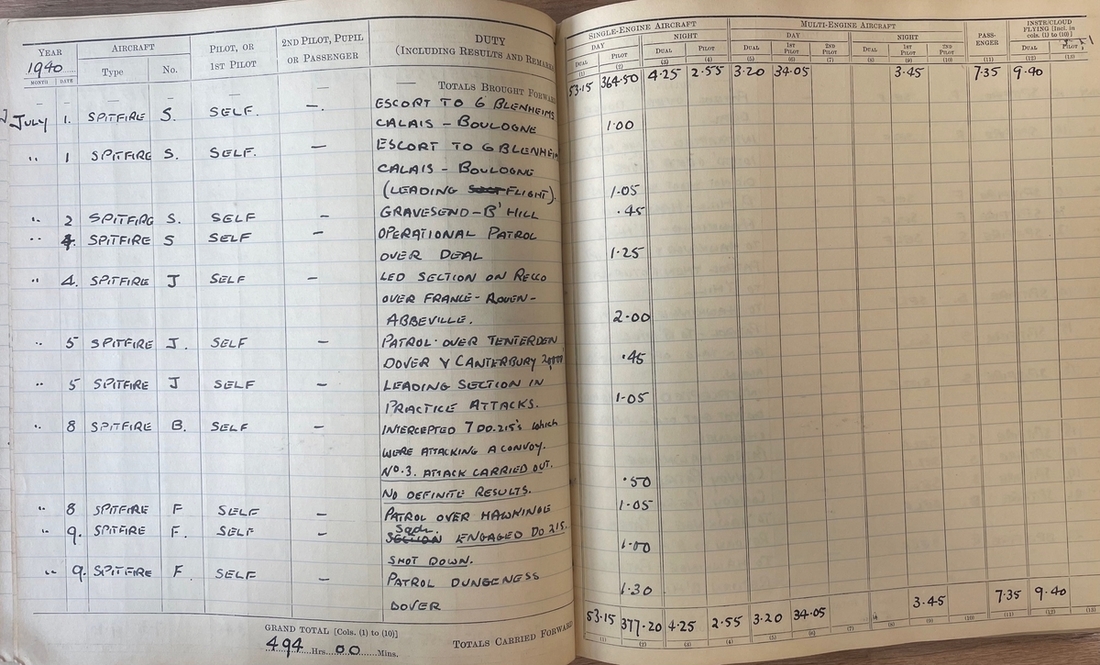 YEAR AIRCRAFT PILOT, OR 1ST PILOT 2ND PILOT, PUPIL OR PASSENGER DUTY (INCLUDING RESULTS AND REMARKS
1940 Type No.
MONTH DATE
SINGLE-ENGINE AIRCRAFT MULTI-ENGINE AIRCRAFT PASS-ENGER INSTR/CLOUD FLYING [Incl. in cols. (1) to (10)]
DAY NIGHT DAY NIGHT
DUAL PILOT DUAL PILOT DUAL 1ST PILOT 2ND PILOT DUAL 1ST PILOT 2ND PILOT DUAL PILOT
(1) (2) (3) (4) (5) (6) (7) (8) (9) (10) (11) (12) (13)
— — — — — — TOTALS BROUGHT FORWARD 53.15 364.50 4.25 2.55 3.20 34.05 3.45 7.35 9.40
JULY 1. SPITFIRE S. SELF. —. ESCORT TO 6 BLENHEIMS
CALAIS – BOULOGNE 1.00
" 1 SPITFIRE S. SELF. — ESCORT TO 6 BLENHEIM
CALAIS – BOULOGNE
(LEADING FLIGHT). 1.05
" 2 SPITFIRE S. SELF – GRAVESEND – B' HILL .45
" 4. SPITFIRE S SELF – OPERATIONAL PATROL
OVER DEAL 1.25
" 4. SPITFIRE J SELF – LED SECTION ON RECCO
OVER FRANCE - ROUEN -
ABBEVILLE. 2.00
" 5 SPITFIRE J. SELF – PATROL OVER TENTERDEN
DOVER Y CANTERBURY .45
" 5 SPITFIRE J SELF – LEADING SECTION IN
PRACTICE ATTACKS. 1.05
" 8 SPITFIRE B. SELF – INTERCEPTED 7 DO.215's which
WERE ATTACKING A CONVOY.
No.3. ATTACK CARRIED OUT.
NO DEFINITE RESULTS. .50
" 8 SPITFIRE F SELF – PATROL OVER HAWKINGE 1.05
" 9. SPITFIRE F. SELF – SECTION Sqdn. ENGAGED DO 215.
SHOT DOWN. 1.00
" 9. SPITFIRE F. SELF – PATROL DUNGENESS
DOVER 1.30
GRAND TOTAL [Cols. (1) to (10)]
494 Hrs. 00 Mins.
TOTALS CARRIED FORWARD 53.15 377.20 4.25 2.55 3.20 34.05 3.45 7.35 9.40
(1) (2) (3) (4) (5) (6) (7) (8) (9) (10) (11) (12) (13)